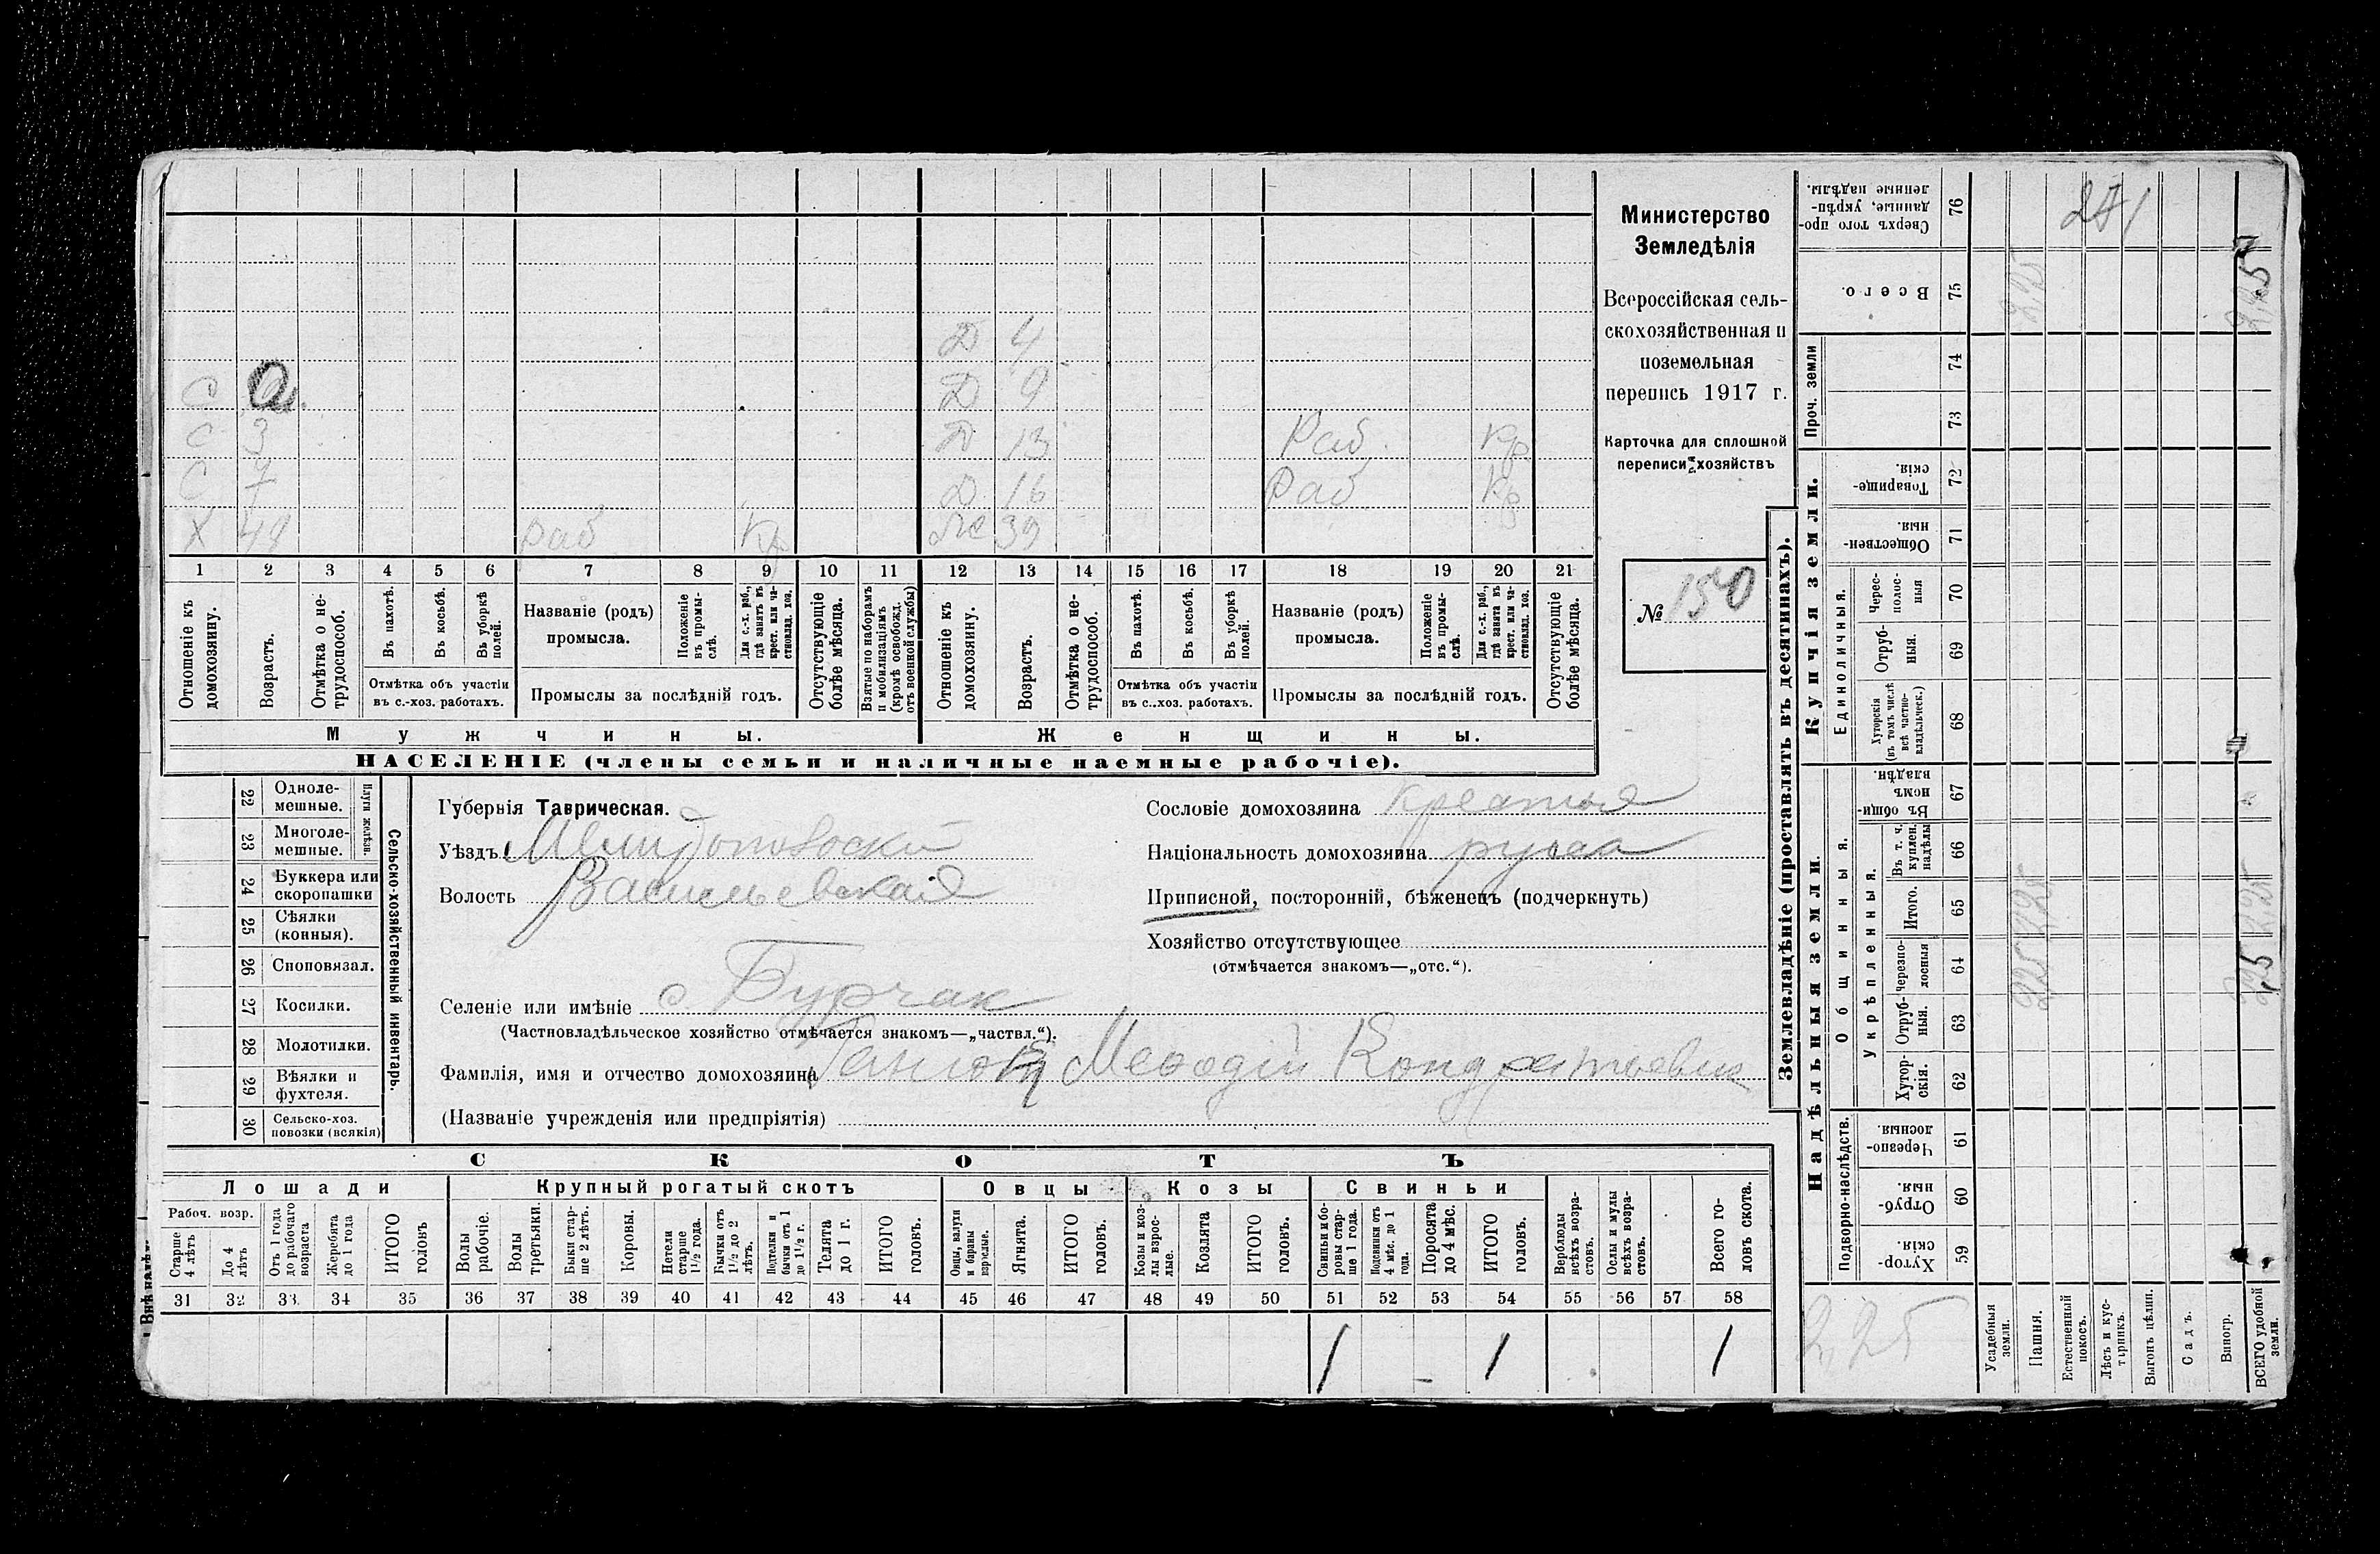 Д 4
С Д 9
С 3 Д 13 Раб. Кр
С 7 Д 16 Раб Кр
Х 49 раб Кр Же 39
1 2 3 4 5 6 7 8 9 10 11 12 13 14 15 16 17 18 19 20 21
Отношеніе къ домохозяину.
Возрастъ.
Отмѣтка о нетрудоспособ.
Въ пахотѣ.
Въ косьбѣ.
Въ уборкѣ полей.
Отмѣтка объ участіи
въ с.-хоз. работахъ.
Названіе (родъ)
промысла.
Положеніе въ промыслѣ.
Для с.-х. раб., гдѣ занятъ въ крест. или частновлад. хоз.
Промыслы за послѣдній годъ.
Отсутствующіе болѣе мѣсяца.
Взятые по наборамъ и мобилизаціямъ (кромѣ освобожд. отъ военной службы)
Отношеніе къ домохозяину.
Возрастъ.
Отмѣтка о нетрудоспособ.
Въ пахотѣ.
Въ косьбѣ.
Въ уборкѣ полей.
Отмѣтка объ участіи
въ с..хоз. работахъ.
Названіе (родъ)
промысла.
Положеніе въ промыслѣ.
Для с.-х. раб., гдѣ занятъ въ крест. или частновлад. хоз.
Промыслы за послѣдній годъ.
Отсутствующіе болѣе мѣсяца.
Мужчины. Женщины.
НАСЕЛЕНІЕ (члены семьи и наличные наемные рабочіе).
Министерство
Земледѣлія
Всероссійская сель-
скохозяйственная и
поземельная
перепись 1917 г.
Карточка для сплошной
переписи хозяйствъ
№ 150
22 Одноле-
мешные.
23 Многоле-
мешные.
Плуги желѣзн.
24 Буккера или
скоропашки
25 Сѣялки
(конныя).
26 Сноповязал.
27 Косилки.
28 Молотилки.
29 Вѣялки и
фухтеля.
30 Сельско-хоз.
повозки (всякія)
Сельско-хозяйственный инвентарь.
Губернія Таврическая.
Уѣздъ Мелитопольскій
Волость Васильевская
Селеніе или имѣніе с. Бурчак
(Частновладѣльческое хозяйство отмѣчается знакомъ—„частвл.“).
Фамилія, имя и отчество домохозяина Мефодій Кондратьевич
(Названіе учрежденія или предпріятія)
Сословіе домохозяина
Національность домохозяина
Приписной, посторонній, бѣженецъ (подчеркнуть)
Хозяйство отсутствующее
(отмѣчается знакомъ—„отс.“).
СКОТЪ
Лошади Крупный рогатый скотъ Овцы Козы Свиньи
Рабоч. возр.
Старше 4 лѣтъ
До 4 лѣтъ
Отъ 1 года до рабочаго возраста
Жеребята до 1 года
ИТОГО головъ
Волы рабочіе.
Волы третьяки.
Быки старше 2 лѣтъ.
Коровы.
Нетели старше 1½ года.
Бычки отъ 1½ до 2 лѣтъ.
Подтелки и бычки отъ 1 до 1½ г.
Телята до 1 г.
ИТОГО головъ.
Овцы, валухи и бараны взрослые.
Ягнята.
ИТОГО головъ.
Козы и козлы взрослые.
Козлята
ИТОГО головъ.
Свиньи и боровы старше 1 года.
Подсвинки отъ 4 мѣс. до 1 года.
Поросята до 4 мѣс.
ИТОГО головъ.
Верблюды всѣхъ возрастовъ.
Ослы и мулы всѣхъ возрастовъ.
Всего головъ скота.
31 32 33 34 35 36 37 38 39 40 41 42 43 44 45 46 47 48 49 50 51 52 53 54 55 56 57 58
1 – 1 1
Землевладѣніе (проставлять въ десятинахъ).
Купчія земли.
Надѣльныя земли.
Сверхъ того проданные, укрѣпленные надѣлы. 76
Всего. 75 2,25 2,25
Проч. земли 74
73
Товарищескія. 72
Общественныя. 71
Единоличныя.
Чересполосныя 70
Отрубныя. 69
Хуторскія (въ томъ числѣ всѣ частновладѣльческ.) 68
Общинныя.
Въ общинномъ владѣн. 67
Укрѣпленныя.
Въ т. ч. куплен. надѣлы 66
Итого. 65
Черезполосныя 64
Отрубныя. 63
Хуторскія. 62
Подворно-наслѣдств.
Черезполосныя. 61
Отрубныя. 60
Хуторскія. 59
2,25
Усадебныя земли.
Пашня.
Естественный покосъ.
Лѣсъ и кустарникъ.
Выгонъ цѣлин.
Садъ.
Виногр.
ВСЕГО удобной земли.